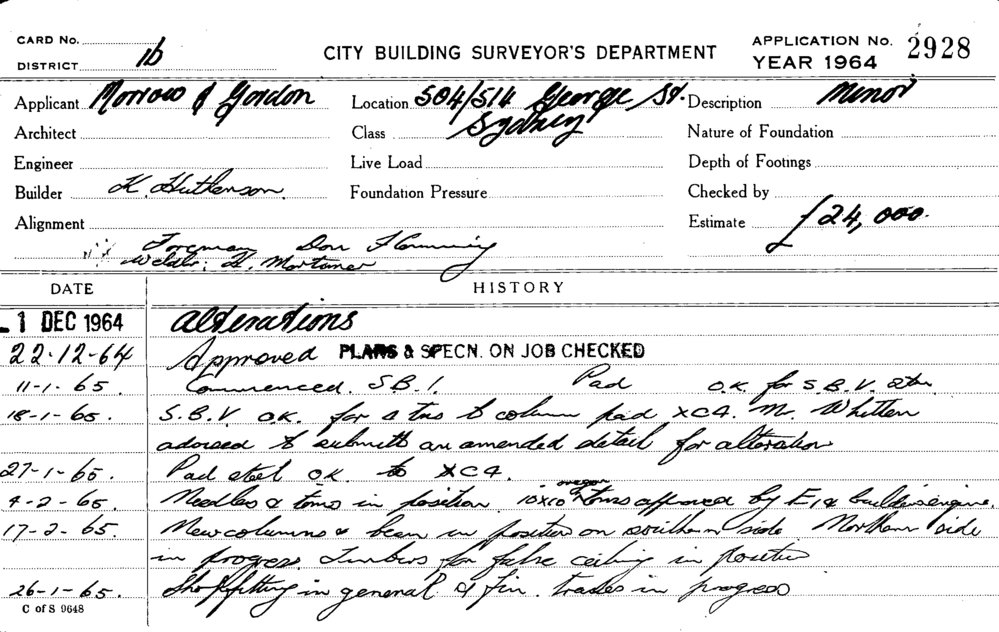 CARD No.
DISTRICT 1b
CITY BUILDING SURVEYOR'S DEPARTMENT
APPLICATION No. 2928
YEAR 1964
Applicant Morrow & Gordon
Location 504/514 George St.
Sydney
Description Minor
Architect
Class
Nature of Foundation
Engineer
Live Load
Depth of Footings
Builder K. Hutchenson
Foundation Pressure
Checked by
Alignment
Estimate £24,000.
Foreman Don Flamming
Welder: H. Mortimer
DATE
HISTORY
1 DEC 1964 Alterations
22-12-64 Approved PLANS & SPECN. ON JOB CHECKED
11-1-65. Commenced. S.B.1. Pad O.K. for S.B.V.
18-1-65. S.B.V. O.K. for to column pad XC4. M. Whitten
advised to submitt an amended detail for alteration
27-1-65. Pad steel OK to XC4.
4-2-65. Needles & toms in position 10x10 oregon toms approved by
17-2-65. New columns & beam in position on southern side Northern side
in progress. Timbers for false ceiling in position
26-1-65. Shopfitting in general & fin. trades in progress
C of S 9648